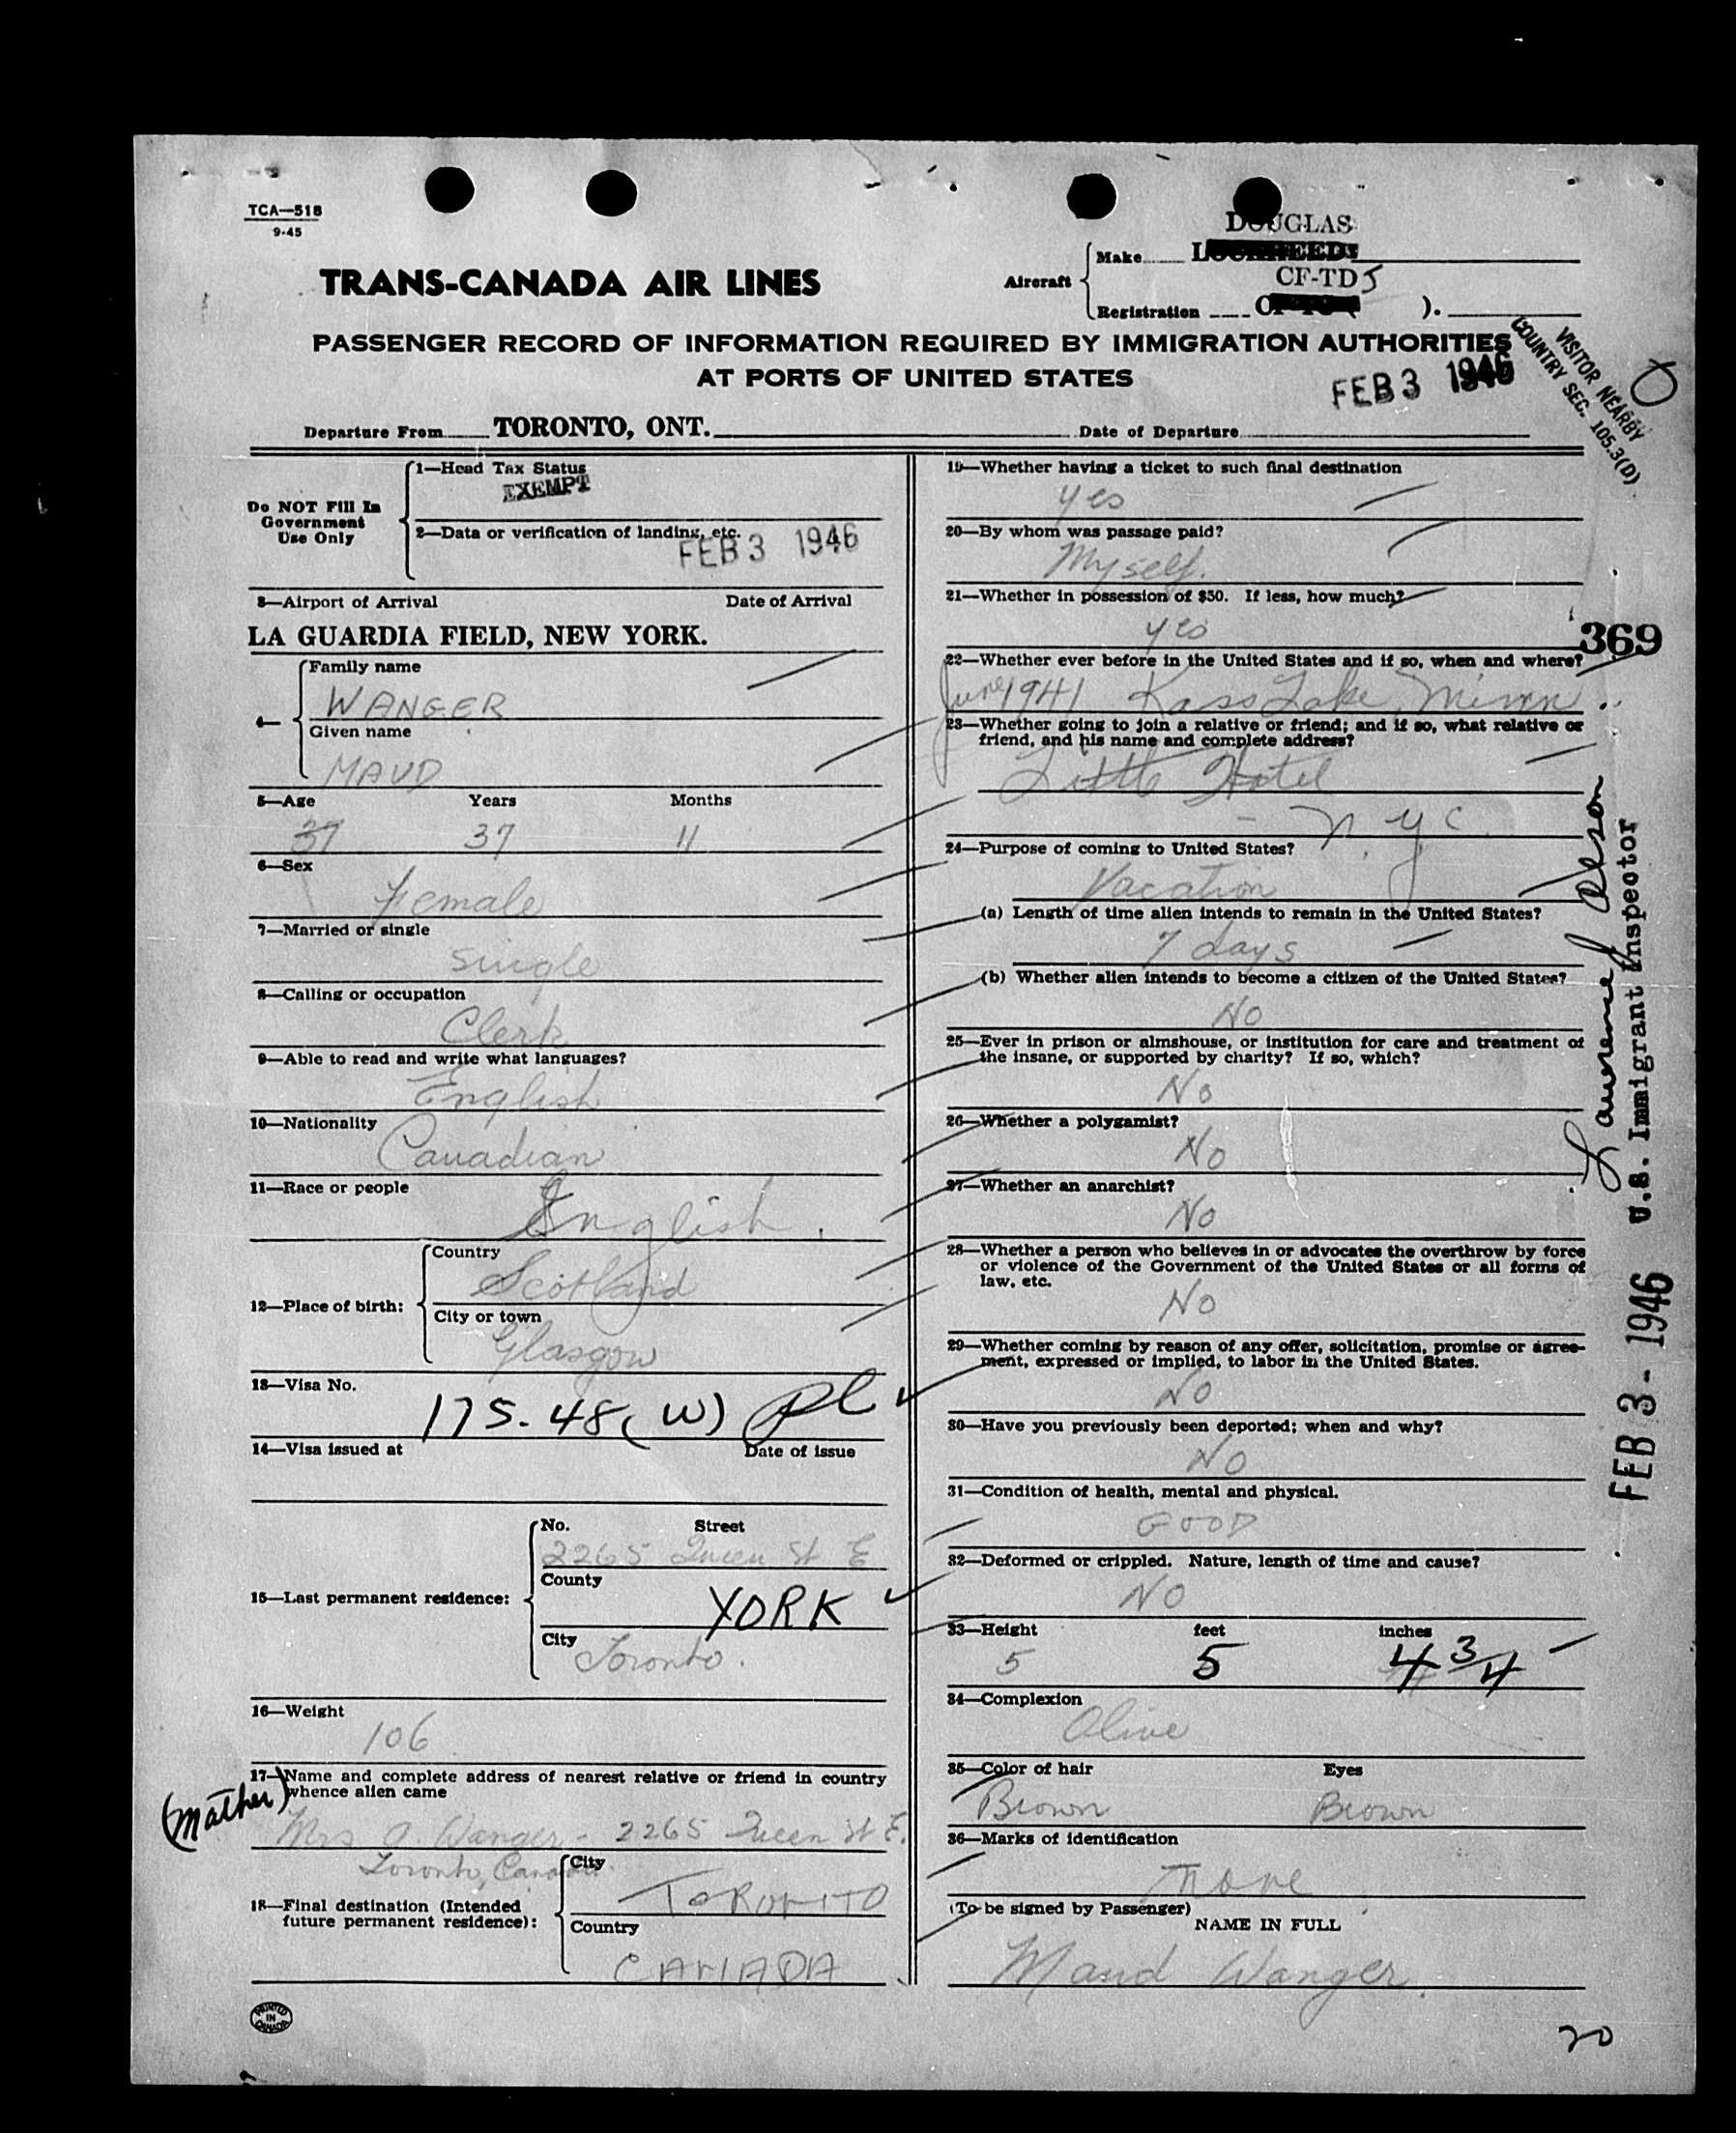 TCA—518
9-45
DOUGLAS
Aircraft
Make
CF-TDJ
Registration ).
TRANS-CANADA AIR LINES
PASSENGER RECORD OF INFORMATION REQUIRED BY IMMIGRATION AUTHORITIES
AT PORTS OF UNITED STATES
FEB 3 1946
VISITOR NEARBY
COUNTRY SEC. 105.3(D)
Departure From TORONTO, ONT. Date of Departure
Do NOT Fill In
Government
Use Only
1—Head Tax Status
EXEMPT
2—Data or verification of landing, etc.
FEB 3 1946
3—Airport of Arrival Date of Arrival
LA GUARDIA FIELD, NEW YORK.
4—
Family name
WANGER
Given name
MAUD
5—Age Years Months
37 37 11
6—Sex
Female
7—Married or single
Single
8—Calling or occupation
Clerk
9—Able to read and write what languages?
English
10—Nationality
Canadian
11—Race or people
English.
12—Place of birth:
Country
Scotland
City or town
Glasgow
13—Visa No.
175.48(W)
14—Visa issued at Date of issue
15—Last permanent residence:
No. Street
2265 Queen St E
County
YORK
City
Toronto.
16—Weight
106
17—Name and complete address of nearest relative or friend in country
whence alien came
(Mother)
Mrs A. Wanger - 2265 Queen St E.
Toronto, Canada.
18—Final destination (Intended
future permanent residence):
City
TORONTO
Country
CANADA
PRINTED
IN
CANADA
19—Whether having a ticket to such final destination
yes
20—By whom was passage paid?
Myself.
21—Whether in possession of $50. If less, how much?
yes
369
22—Whether ever before in the United States and if so, when and where?
June 1941 Kass Lake, Minn.
23—Whether going to join a relative or friend; and if so, what relative or
friend, and his name and complete address?
Hotel
- N.Y.C.
24—Purpose of coming to United States?
Vacation
(a) Length of time alien intends to remain in the United States?
7 days
(b) Whether alien intends to become a citizen of the United States?
No
25—Ever in prison or almshouse, or institution for care and treatment of
the insane, or supported by charity? If so, which?
No
26—Whether a polygamist?
No
27—Whether an anarchist?
No
28—Whether a person who believes in or advocates the overthrow by force
or violence of the Government of the United States or all forms of
law, etc.
No
29—Whether coming by reason of any offer, solicitation, promise or agree-
ment, expressed or implied, to labor in the United States.
No
30—Have you previously been deported; when and why?
No
31—Condition of health, mental and physical.
GOOD
32—Deformed or crippled. Nature, length of time and cause?
NO
33—Height feet inches
5 5 4 3/4
34—Complexion
Olive
35—Color of hair Eyes
Brown Brown
36—Marks of identification
None
(To be signed by Passenger)
NAME IN FULL
Maud Wanger.
20
Lawrence
U.S. Immigrant Inspector
FEB 3 - 1946